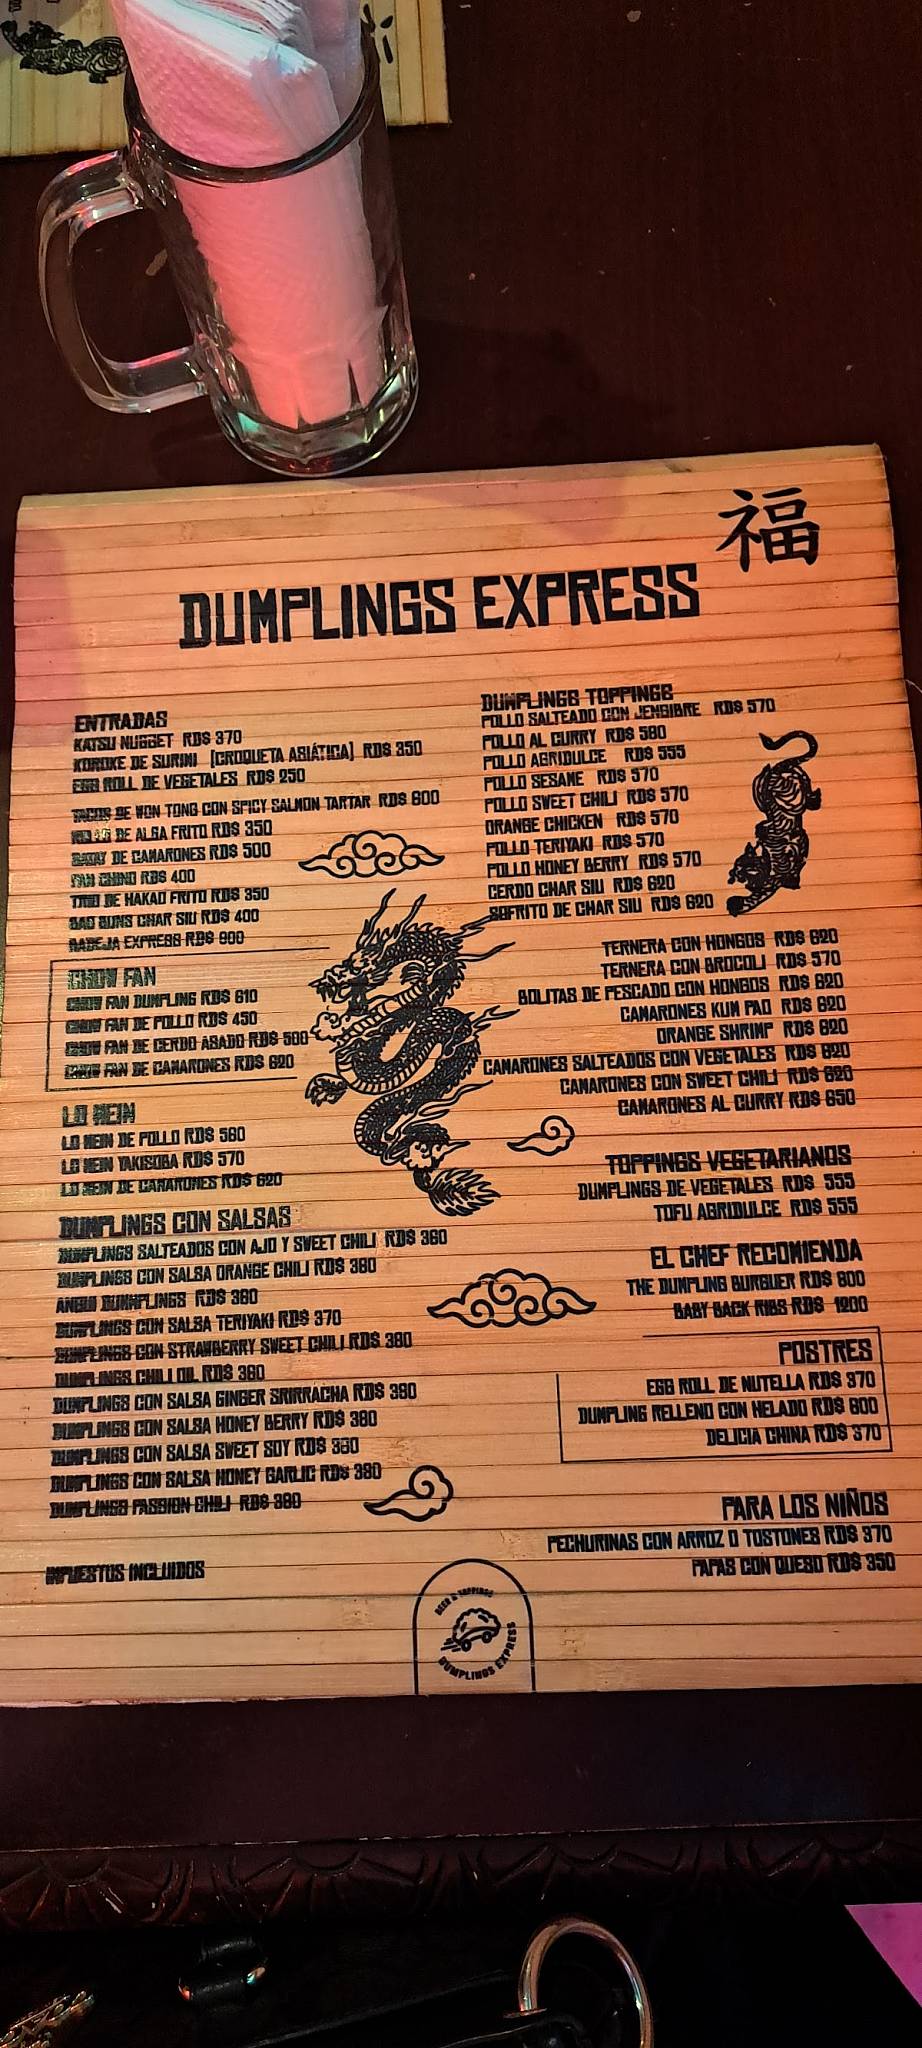 福
DUMPLINGS EXPRESS
ENTRADAS
KATSU NUGGET RD$ 370
KOROKE DE SURIMI [CROQUETA ASIÁTICA] RD$ 350
EGG ROLL DE VEGETALES RD$ 250
TACOS DE WON TONG CON SPICY SALMON TARTAR RD$ 600
ROLLO DE ALGA FRITO RD$ 350
SATAY DE CAMARONES RD$ 500
PAN CHINO RD$ 400
TRIO DE HAKAO FRITO RD$ 350
BAO BUNS CHAR SIU RD$ 400
BADEJA EXPRESS RD$ 900
CHOW FAN
CHOW FAN DUMPLING RD$ 610
CHOW FAN DE POLLO RD$ 450
CHOW FAN DE CERDO ASADO RD$ 500
CHOW FAN DE CAMARONES RD$ 620
LO MEIN
LO MEIN DE POLLO RD$ 560
LO MEIN YAKISOBA RD$ 570
LO MEIN DE CAMARONES RD$ 620
DUMPLINGS CON SALSAS
DUMPLINGS SALTEADOS CON AJO Y SWEET CHILI RD$ 360
DUMPLINGS CON SALSA ORANGE CHILI RD$ 380
RD$ 360
DUMPLINGS CON SALSA TERIYAKI RD$ 370
DUMPLINGS CON STRAWBERRY SWEET CHILI RD$ 380
DUMPLINGS CHILI OIL RD$ 360
DUMPLINGS CON SALSA GINGER SRIRRACHA RD$ 390
DUMPLINGS CON SALSA HONEY BERRY RD$ 380
DUMPLINGS CON SALSA SWEET SOY RD$
DUMPLINGS CON SALSA HONEY GARLIC RD$ 380
DUMPLINGS PASSION CHILI RD$ 380
IMPUESTOS INCLUIDOS
DUMPLINGS TOPPINGS
POLLO SALTEADO CON JENGIBRE RD$ 570
POLLO AL CURRY RD$ 580
POLLO AGRIDULCE RD$ 555
POLLO SESAME RD$ 570
POLLO SWEET CHILI RD$ 570
ORANGE CHICKEN RD$ 570
POLLO TERIYAKI RD$ 570
POLLO HONEY BERRY RD$ 570
CERDO CHAR SIU RD$ 620
SOFRITO DE CHAR SIU RD$ 620
TERNERA CON HONGOS RD$ 620
TERNERA CON BROCOLI RD$ 570
BOLITAS DE PESCADO CON HONGOS RD$ 620
CAMARONES KUM PAO RD$ 620
ORANGE SHRIMP RD$ 620
CAMARONES SALTEADOS CON VEGETALES RD$ 620
CAMARONES CON SWEET CHILI RD$ 620
CAMARONES AL CURRY RD$ 650
TOPPINGS VEGETARIANOS
DUMPLINGS DE VEGETALES RD$ 555
TOFU AGRIDULCE RD$ 555
EL CHEF RECOMIENDA
THE DUMPLING BURGUER RD$ 600
BABY BACK RIBS RD$ 1200
POSTRES
EGG ROLL DE NUTELLA RD$ 370
DUMPLING RELLENO CON HELADO RD$ 600
DELICIA CHINA RD$ 370
PARA LOS NIÑOS
PECHURINAS CON ARROZ O TOSTONES RD$ 370
PAPAS CON QUESO RD$ 350
BEER & TOPPINGS
DUMPLINGS EXPRESS